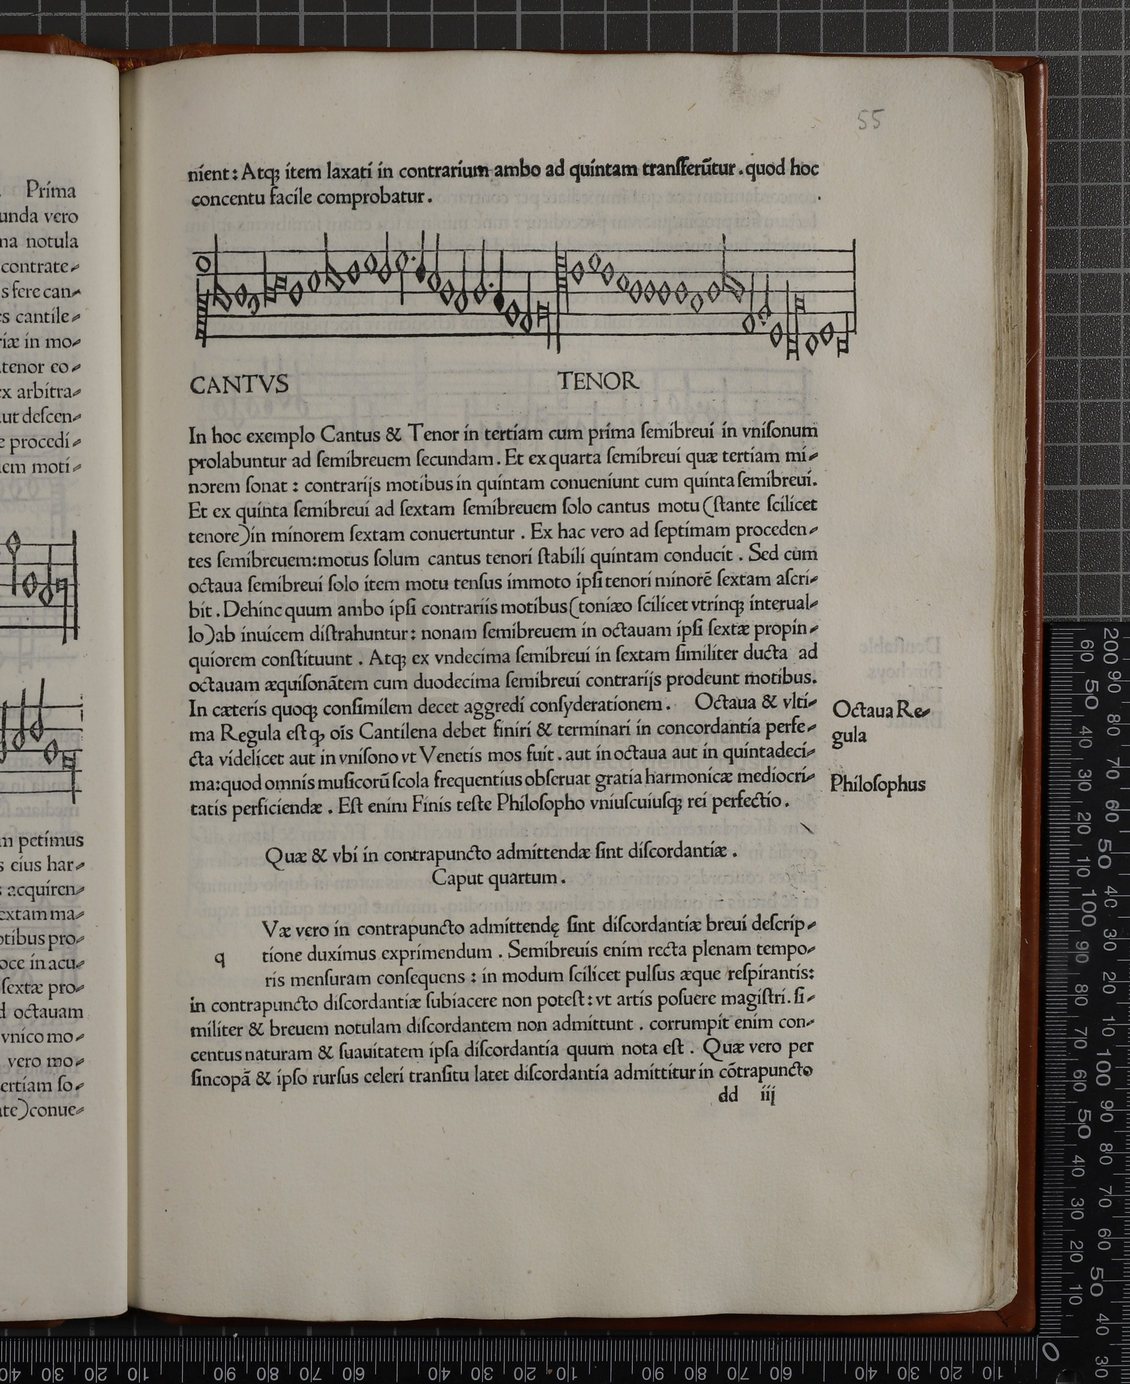 55
nient : Atq; item laxati in contrarium ambo ad quintam transferũtur . quod hoc
concentu facile comprobatur .
CANTVS
TENOR
In hoc exemplo Cantus & Tenor in tertiam cum prima ſemibreui in vniſonum
prolabuntur ad ſemibreuem ſecundam . Et ex quarta ſemibreui quæ tertiam mi⸗
norem ſonat : contrarijs motibus in quintam conueniunt cum quinta ſemibreui.
Et ex quinta ſemibreui ad ſextam ſemibreuem ſolo cantus motu (ſtante ſcilicet
tenore) in minorem ſextam conuertuntur . Ex hac vero ad ſeptimam proceden⸗
tes ſemibreuem:motus ſolum cantus tenori ſtabili quintam conducit . Sed cum
octaua ſemibreui ſolo item motu tenſus immoto ipſi tenori minorẽ ſextam aſcri⸗
bit . Dehinc quum ambo ipſi contrariis motibus (toniæo ſcilicet vtrinq; interual⸗
lo) ab inuicem diſtrahuntur : nonam ſemibreuem in octauam ipſi ſextæ propin⸗
quiorem conſtituunt . Atq; ex vndecima ſemibreui in ſextam ſimiliter ducta ad
octauam æquiſonãtem cum duodecima ſemibreui contrarijs prodeunt motibus.
In cæteris quoq; conſimilem decet aggredi conſyderationem . Octaua & vlti⸗
ma Regula eſt ꝙ oĩs Cantilena debet finiri & terminari in concordantia perfe⸗
cta videlicet aut in vniſono vt Venetis mos fuit . aut in octaua aut in quintadeci⸗
ma:quod omnis muſicorũ ſcola frequentius obſeruat gratia harmonicæ mediocri⸗
tatis perficiendæ . Eſt enim Finis teſte Philoſopho vniuſcuiuſq; rei perfectio .
Octaua Re⸗
gula
Philoſophus
Quæ & vbi in contrapuncto admittendæ ſint diſcordantiæ .
Caput quartum .
q
Væ vero in contrapuncto admittendę ſint diſcordantiæ breui deſcrip⸗
tione duximus exprimendum . Semibreuis enim recta plenam tempo⸗
ris menſuram conſequens : in modum ſcilicet pulſus æque reſpirantis:
in contrapuncto diſcordantiæ ſubiacere non poteſt : vt artis poſuere magiſtri. ſi⸗
militer & breuem notulam diſcordantem non admittunt . corrumpit enim con⸗
centus naturam & ſuauitatem ipſa diſcordantia quum nota eſt . Quæ vero per
ſincopã & ipſo rurſus celeri tranſitu latet diſcordantia admittitur in cõtrapuncto
dd iij